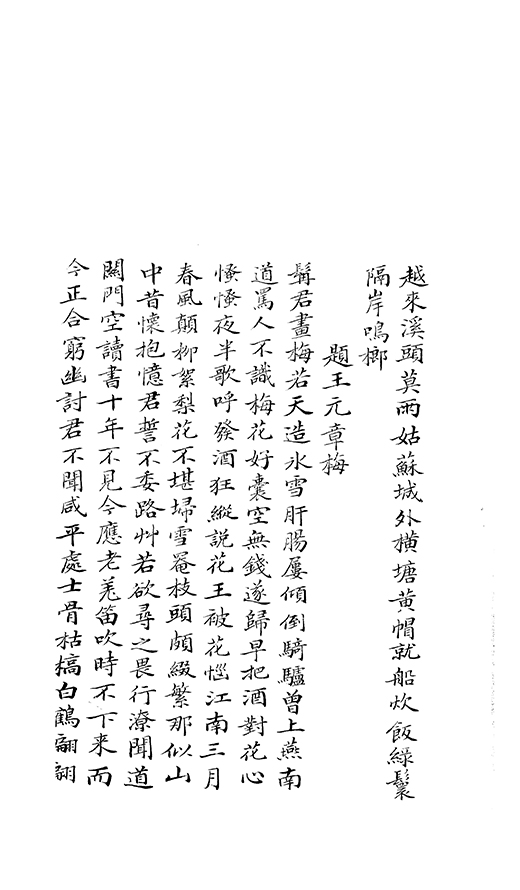 越來溪頭莫雨姑蘇城外橫塘黃帽就船炊飯綠鬟
隔岸鳴榔
題王元章梅
髯君畫梅若天造氷雪肝腸屢傾倒騎驢曾上燕南
道罵人不識梅花好囊空無錢遂歸早把酒對花心
慅慅夜半歌呼發酒狂縱説花王被花惱江南三月
春風顛柳絮梨花不堪埽雪菴枝頭頗綴繁那似山
中昔懷抱憶君誓不委路艸若欲尋之畏行潦聞道
闗門空讀書十年不見今應老羗笛吹時不下来而
今正合窮幽討君不聞咸平處士骨枯槁白鶴翩翩